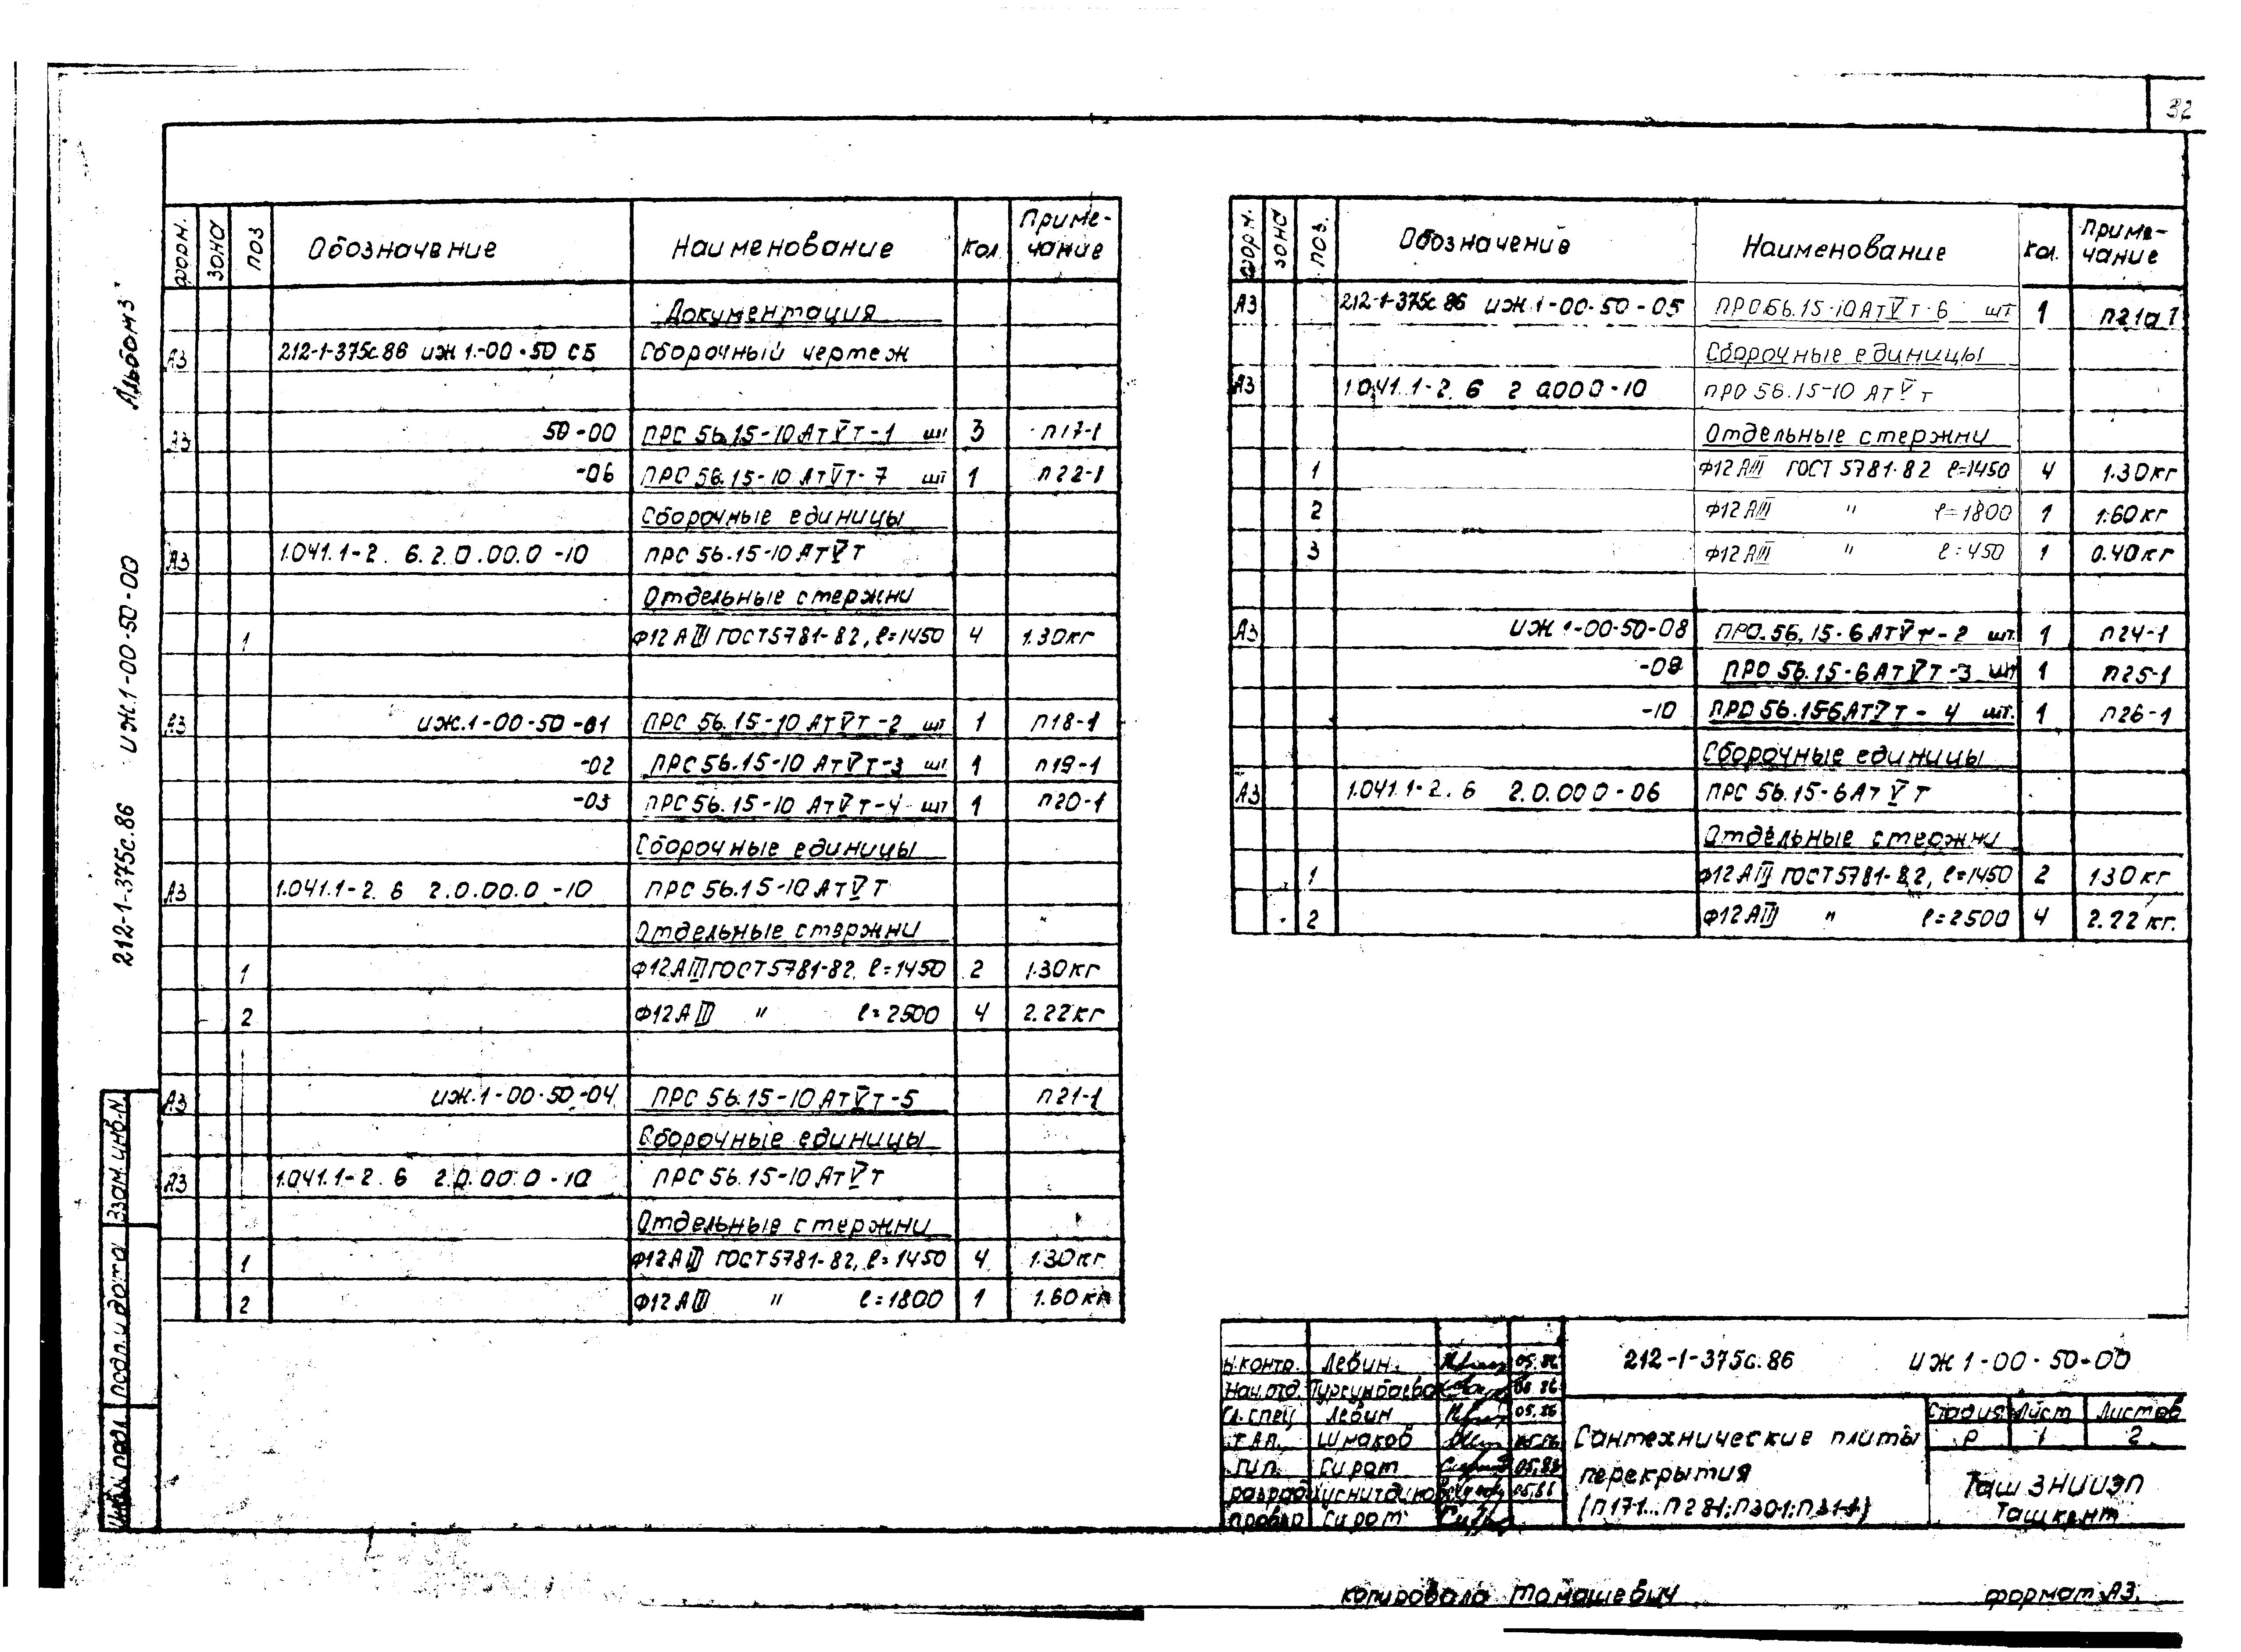 32
Альбом 3
212-1-375с.86 ИЖ.1-00-50-00
Форм. Зона Поз Обозначение Наименование Кол. Примечание
Документация
А3 212-1-375с.86 ИЖ 1.-00-50 СБ Сборочный чертеж
А3 50-00 ПРС 56.15-10 АтVт-1 шт 3 П17-1
-06 ПРС 56.15-10 АтVт-7 шт 1 П22-1
Сборочные единицы
А3 1.041.1-2. 6. 2.0.00.0 -10 ПРС 56.15-10 АтVт
Отдельные стержни
1 Ф12 АIII ГОСТ 5781-82, l=1450 4 1.30кг
А3 ИЖ.1-00-50-01 ПРС 56.15-10 АтVт-2 шт 1 П18-1
-02 ПРС 56.15-10 АтVт-3 шт 1 П19-1
-03 ПРС 56.15-10 АтVт-4 шт 1 П20-1
Сборочные единицы
А3 1.041.1-2. 6 2.0.00.0 -10 ПРС 56.15-10 АтVт
Отдельные стержни
1 Ф12 АIII ГОСТ 5781-82, l=1450 2 1.30кг
2 Ф12 АIII " l=2500 4 2.22кг
А3 ИЖ.1-00-50-04 ПРС 56.15-10 АтVт-5 П21-1
Сборочные единицы
А3 1.041.1-2. 6 2.0.00.0 -10 ПРС 56.15-10 АтVт
Отдельные стержни
1 Ф12 АIII ГОСТ 5781-82, l=1450 4 1.30кг
2 Ф12 АIII " l=1800 1 1.60кг
Форм. Зона Поз. Обозначение Наименование Кол. Примечание
А3 212-1-375с.86 ИЖ.1-00-50-05 ПРО56.15-10 АтVт-6 шт 1 П21а
Сборочные единицы
А3 1.041.1-2. 6 2 0.000-10 ПРО 56.15-10 АтVт
Отдельные стержни
1 Ф12 АIII ГОСТ 5781-82 l=1450 4 1.30кг
2 Ф12 АIII " l=1800 1 1.60кг
3 Ф12 АIII " l=450 1 0.40кг
А3 ИЖ 1-00-50-08 ПРО.56.15-6 АтVт-2 шт. 1 П24-1
ПРО 56.15-6 АтVт-3 шт 1 П25-1
-10 ПРО 56.15-6 АтVт-4 шт. 1 П26-1
Сборочные единицы
А3 1.041.1-2. 6 2.0.000-06 ПРС 56.15-6 АтVт
Отдельные стержни
1 Ф12 АIII ГОСТ 5781-82, l=1450 2 1.30 кг
2 Ф12 АIII " l=2500 4 2.22 кг.
Взам.инв.N
Подп. и дата
Инв. подл
Н.контр. Левин. 05.86
Нач.отд. Турсунбаева 05.86
Гл.спец Левин 05.86
ГАП. Шмаков 05.86
ГИП. Сирот 05.86
разраб 05.86
провер Сирот
212-1-375с.86 ИЖ 1-00-50-00
Сантехнические плиты перекрытия (П17-1...П28-1; П30-1; П31-1)
Стадия Лист Листов
Р 1 2
ТашЗНИИЭП
Ташкент
копировала Томашевич формат А3.